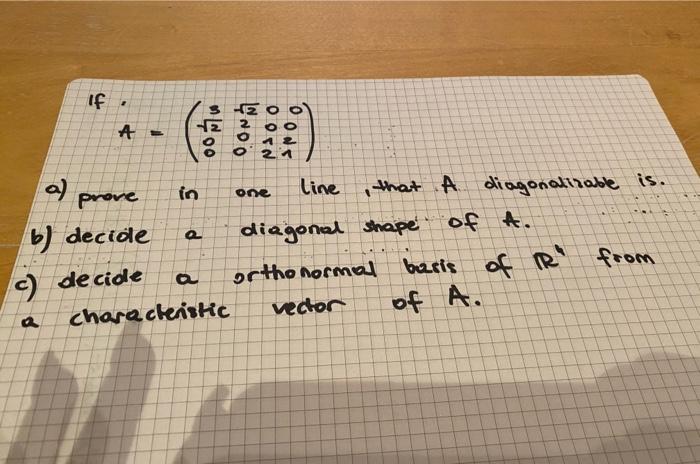 If .
A = ( 3 √2 0 0
√2 2 0 0
0 0 1 2
0 0 2 1 )
a) prove in one line , that A diagonalizable is.
b) decide a diagonal shape of A.
c) decide a orthonormal basis of ℝ⁴ from
a characteristic vector of A.